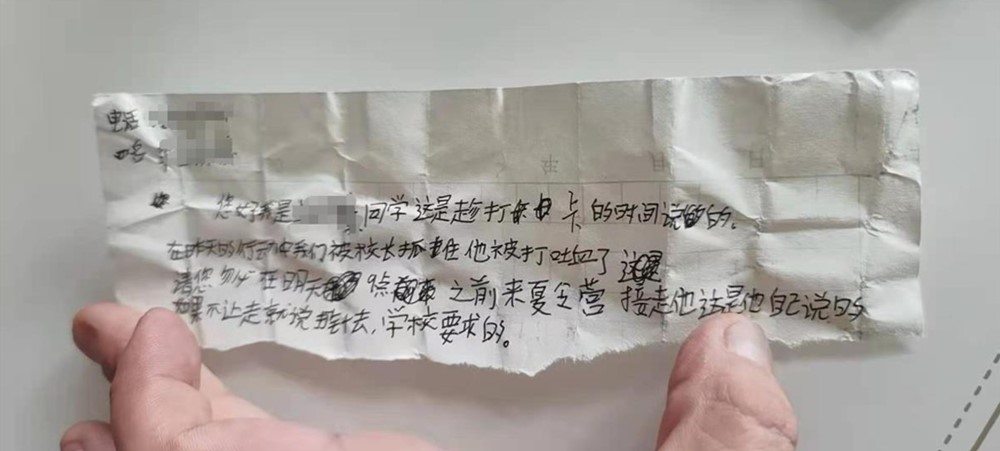 电话
您好我是 同学这是趁打 卡的时间说的。
在昨天的行动中我们被校长抓住他被打吐血了
请您务必在明天 9点 之前来夏令营 接走他这是他自己说的
如果不让走就说 去,学校要求的。